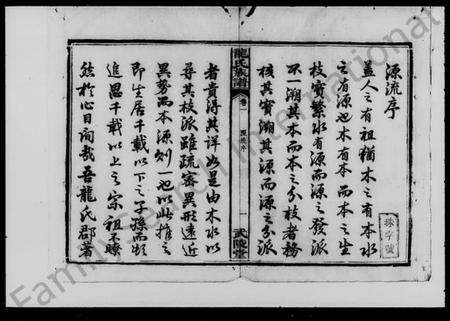 源流序
蓋人之有祖猶木之有本水
之有源也木有本而本之生
枝實繁水有源而源之發派
不一溯其本而本之分枝者務
核其實溯其源而源之分派
龍氏族譜
卷一
源流序
一
武陵堂
者貴得其詳如是由木水以
尋其枝派雖疏密異形遠近
異勢而本源則一也以此推之
即生居千載以下之子孫而欲
追思千載以上之宗祖不瞭
然於心目間哉吾龍氏郡著
FamilySearch International